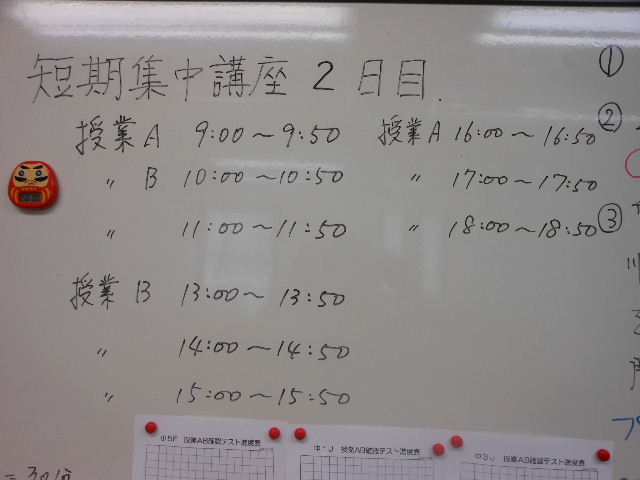 短期集中講座 2 日目.
授業A 9:00〜9:50
〃 B 10:00〜10:50
〃 11:00〜11:50
授業 B 13:00〜13:50
〃 14:00〜14:50
〃 15:00〜15:50
授業A 16:00〜16:50
〃 17:00〜17:50
〃 18:00〜18:50
①
②
③
授業AB確認テスト進度表
中1J 授業AB確認テスト進度表
中3J 授業AB確認テスト進度表
=30分